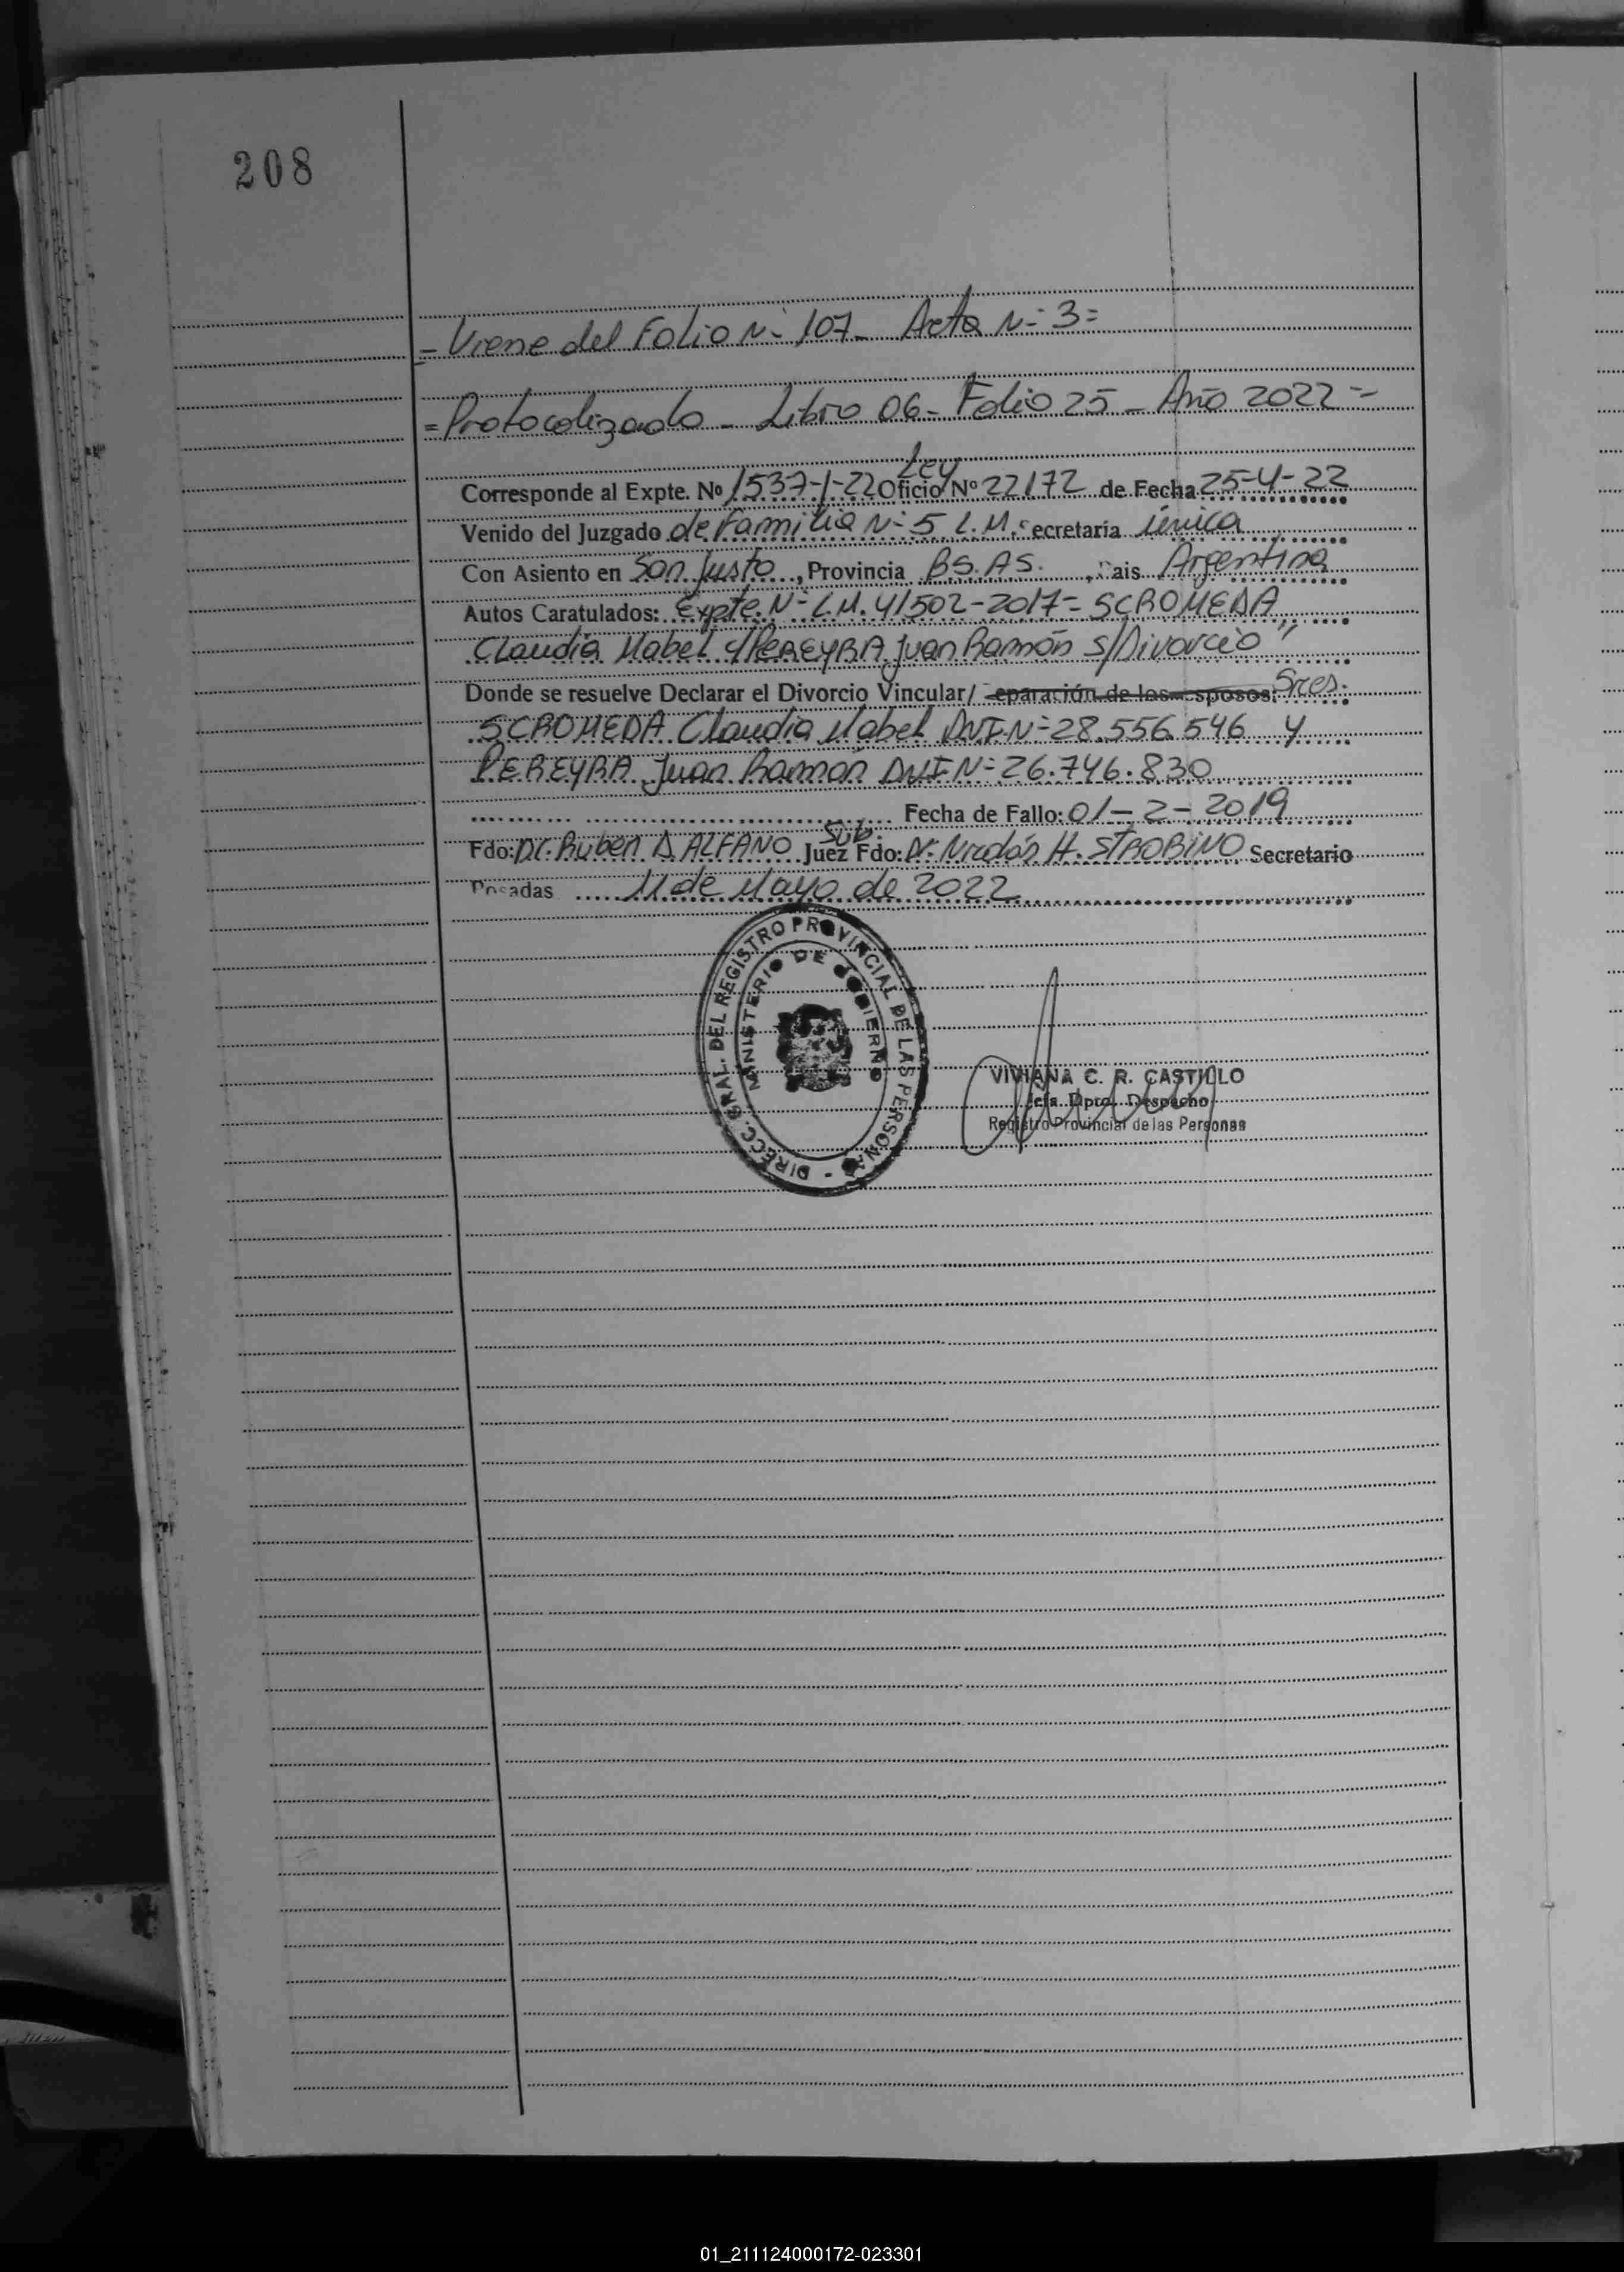 208
= Viene del Folio N- 107- Acta N- 3=
=Protocolizado - Libro 06- Folio 25 - Año 2022 =
Ley
Corresponde al Expte. Nº 1537-1-22 Oficio Nº 22172 de Fecha 25-4-22
Venido del Juzgado de Familia N- 5 L.M. Secretaría única
Con Asiento en San Justo, Provincia BS.AS., Pais Argentina
Autos Caratulados: Expte. N- L.M. 41502-2017= SCROMEDA
Claudia Mabel c/PEREYRA Juan Ramón s/Divorcio"
Donde se resuelve Declarar el Divorcio Vincular/ Separación de los esposos: Sres.
SCROMEDA Claudia Mabel DNI-N=28.556.546 y
PEREYRA Juan Ramón DNI N=26.746.830
Fecha de Fallo: 01-2-2019
Sub.
Fdo: Dr. Ruben D. ALFANO Juez Fdo: Dr. Nicolás H. STROBINO Secretario
Posadas 11 de Mayo de 2022
DIRECC. GRAL. DEL REGISTRO PROVINCIAL DE LAS PERSONAS -
MINISTERIO DE GOBIERNO
VIVIANA C. R. CASTILLO
Jefa Dpto. Despacho
Registro Provincial de las Personas
01_211124000172-023301